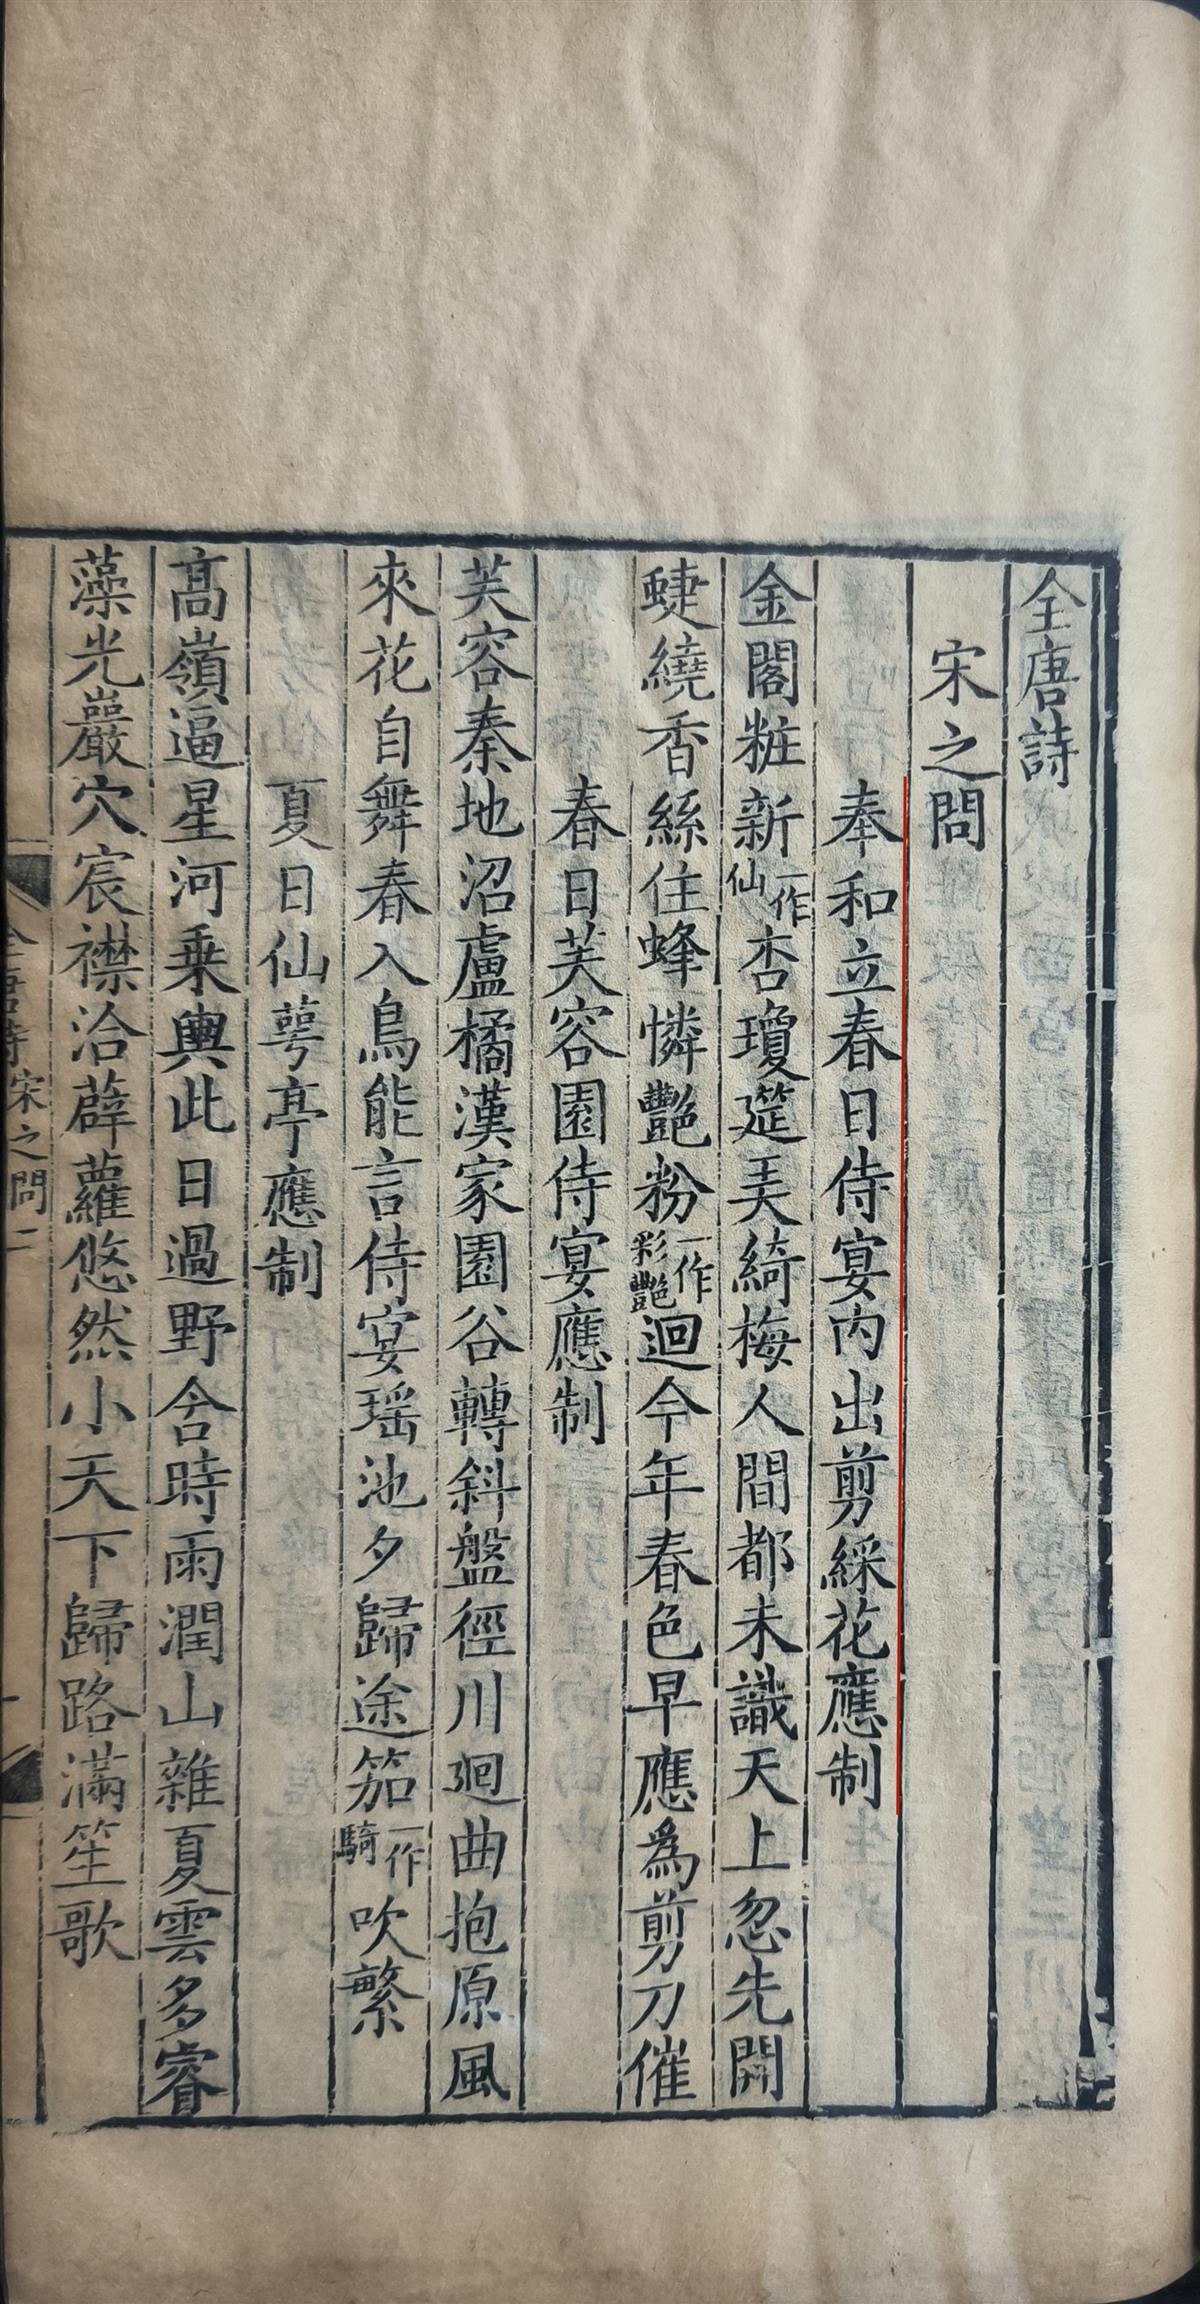 全唐詩
宋之問
奉和立春日侍宴内出剪綵花應制
金閣粧新一作仙杏瓊筵弄綺梅人間都未識天上忽先開
蜨繞香絲住蜂憐艷粉一作彩艷迴今年春色早應為剪刀催
春日芙容園侍宴應制
芙容秦地沼盧橘漢家園谷轉斜盤徑川廻曲抱原風
來花自舞春入鳥能言侍宴瑶池夕歸途笳一作騎吹繁
夏日仙萼亭應制
高嶺逼星河乗輿此日過野含時雨潤山雜夏雲多睿
藻光巖穴宸襟洽薜蘿悠然小天下歸路滿笙歌
全唐詩 宋之問二 一